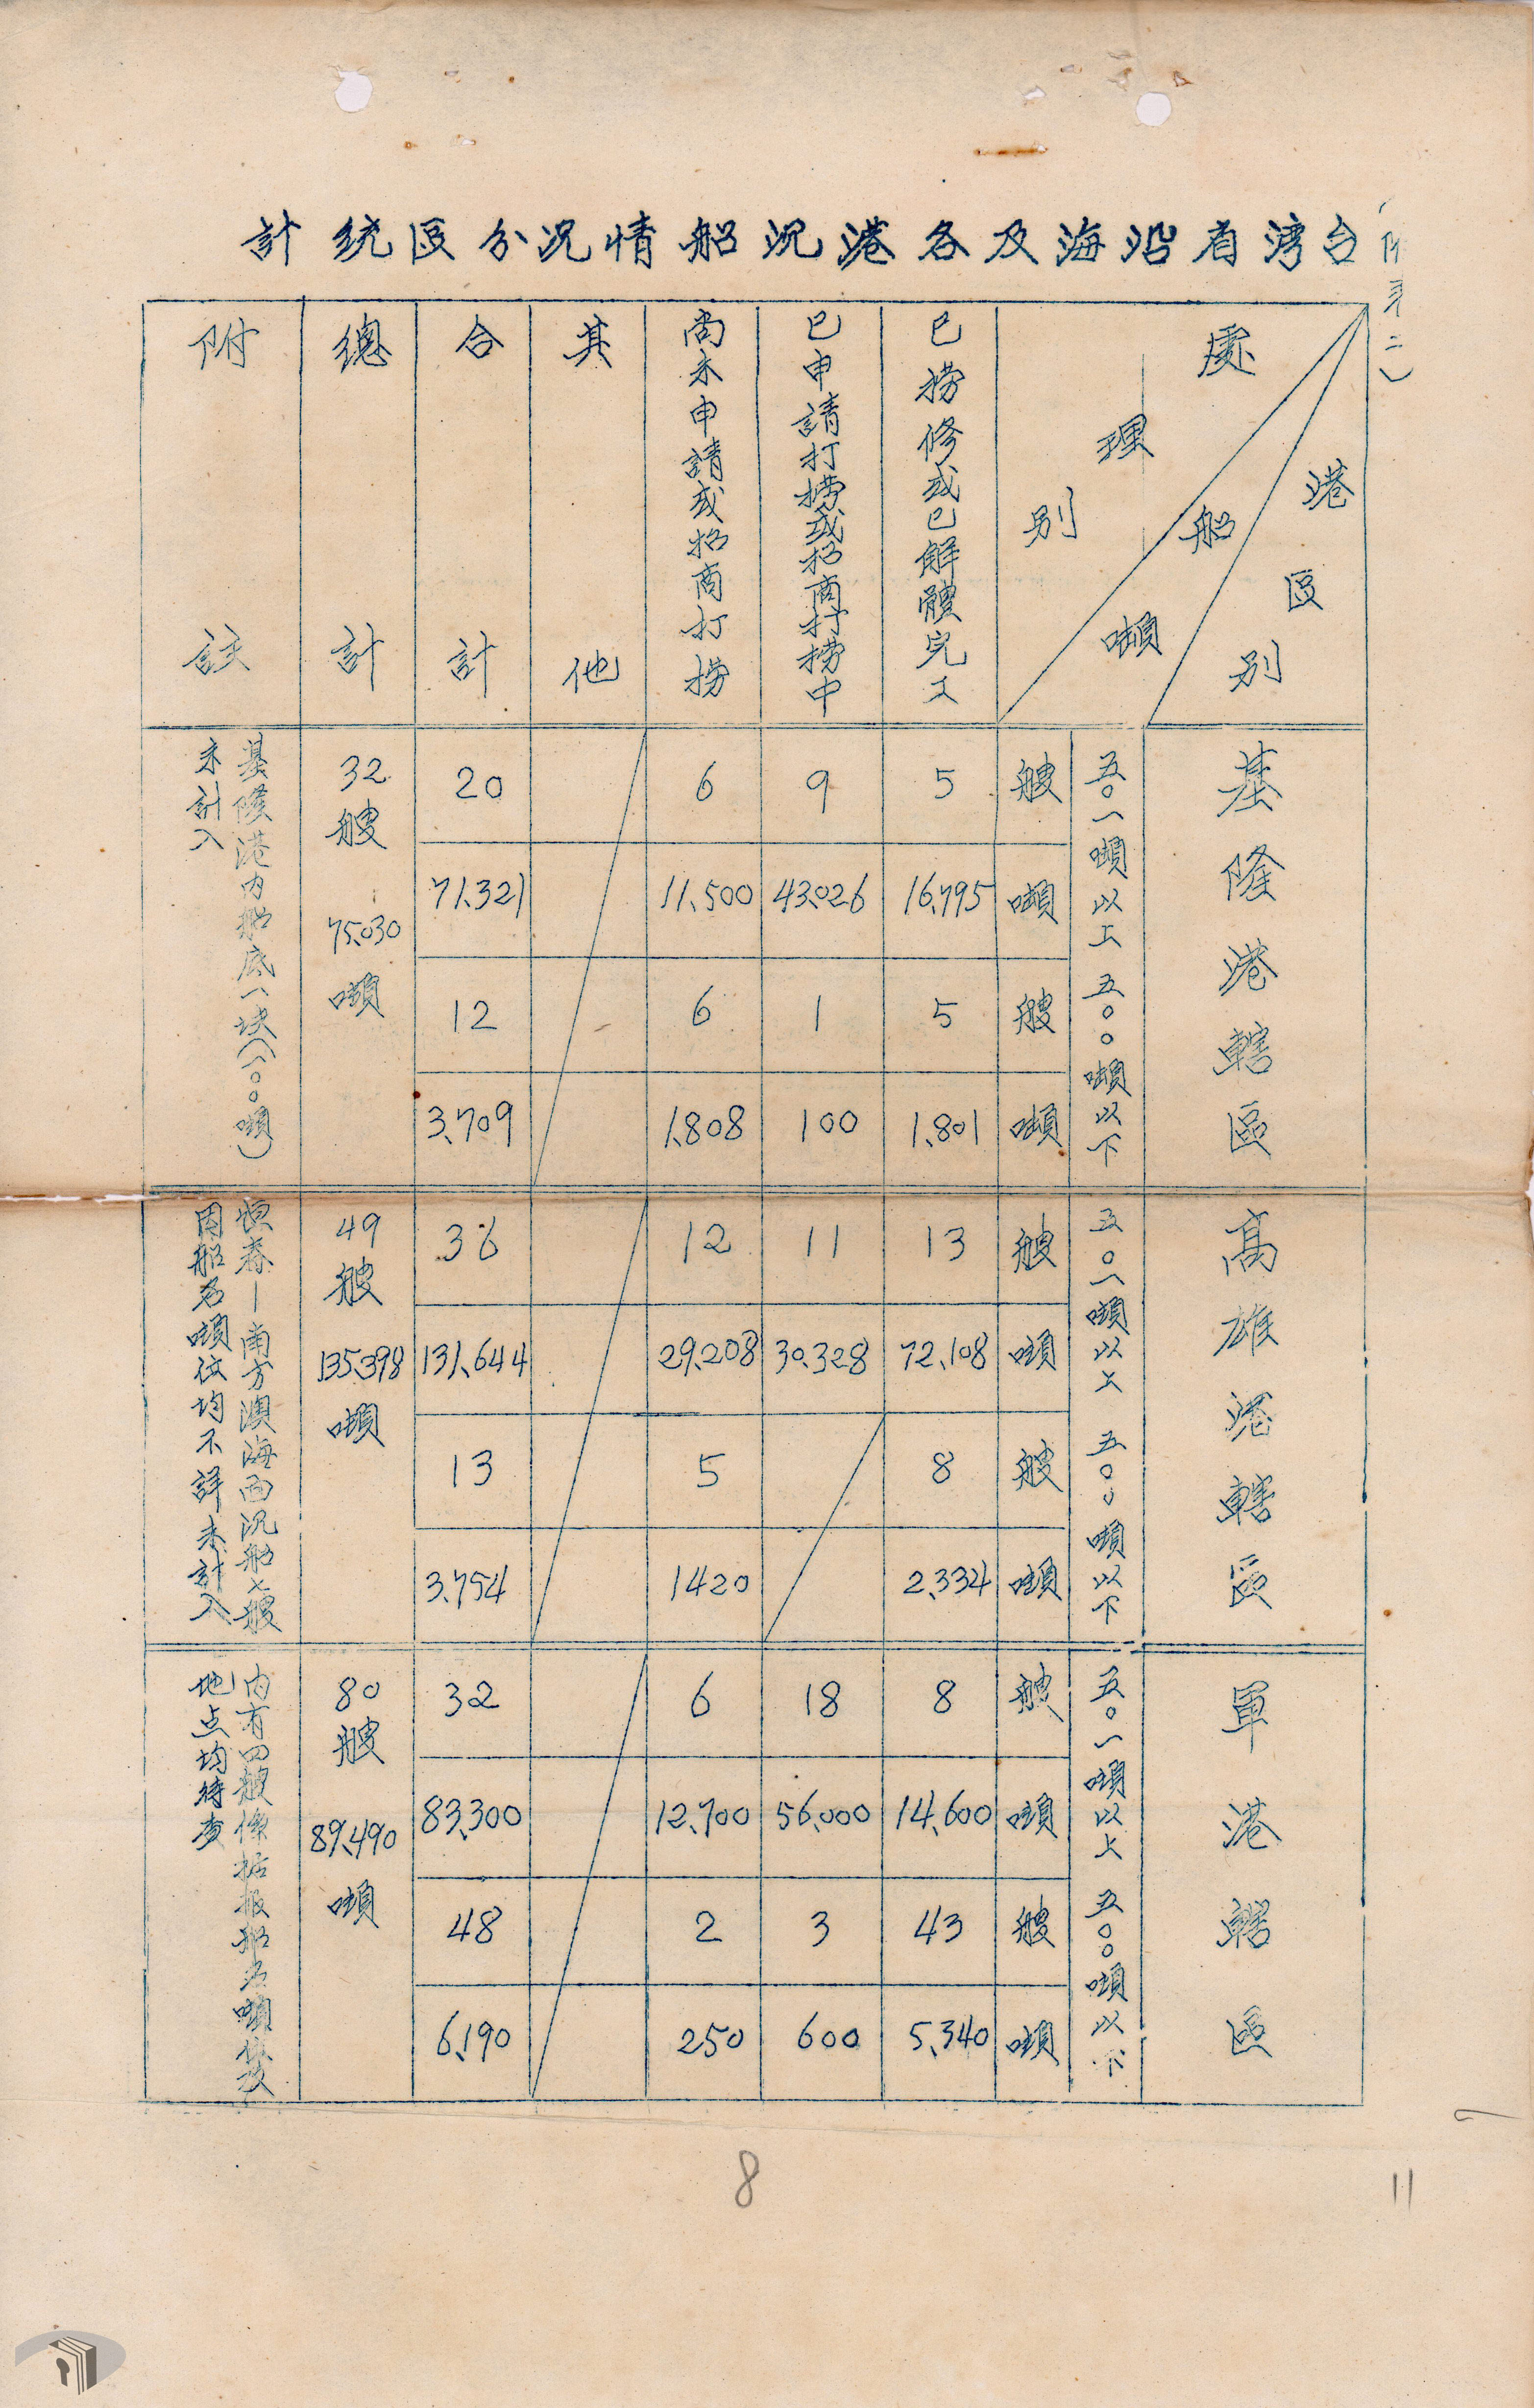 (附表二)
台湾省沿海及各港沉船情況分區統計
港區別
船噸
處理別
已撈修或已解體完工
已申請打撈或招商打撈中
尚未申請或招商打撈
其他
合計
總計
附註
基隆港轄區
五〇一噸以上
艘 5 9 6 20
噸 16,795 43,026 11,500 71,321
五〇〇噸以下
艘 5 1 6 12
噸 1,801 100 1,808 3,709
32艘 75,030噸
基隆港内船底一块(一〇〇噸)
未計入
高雄港轄區
五〇一噸以上
艘 13 11 12 36
噸 72,108 30,328 29,208 131,644
五〇〇噸以下
艘 8 5 13
噸 2,334 1420 3,754
49艘 135,398噸
恒春—南方澳海面沉船七艘
因船名噸位均不詳未計入
軍港轄區
五〇一噸以上
艘 8 18 6 32
噸 14,600 56,000 12,700 83,300
五〇〇噸以下
艘 43 3 2 48
噸 5,340 600 250 6,190
80艘 89,490噸
内有四艘係據报船名噸位及
地点均待查
8
11